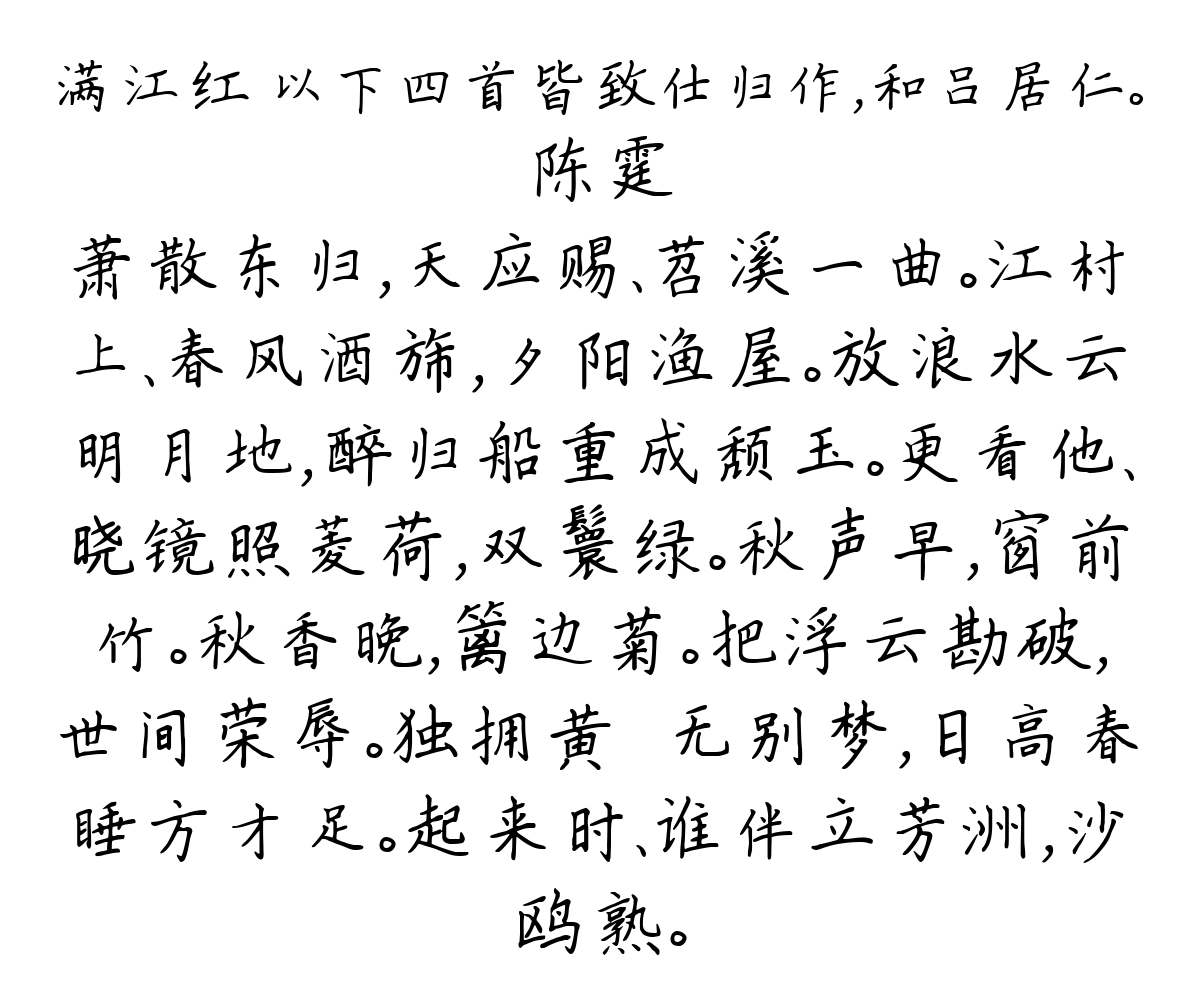 满江红 以下四首皆致仕归作,和吕居仁。
陈霆
萧散东归,天应赐、苕溪一曲。江村
上、春风酒旆,夕阳渔屋。放浪水云
明月地,醉归船重成颓玉。更看他、
晓镜照菱荷,双鬟绿。秋声早,窗前
竹。秋香晚,篱边菊。把浮云勘破,
世间荣辱。独拥黄 无别梦,日高春
睡方才足。起来时、谁伴立芳洲,沙
鸥熟。